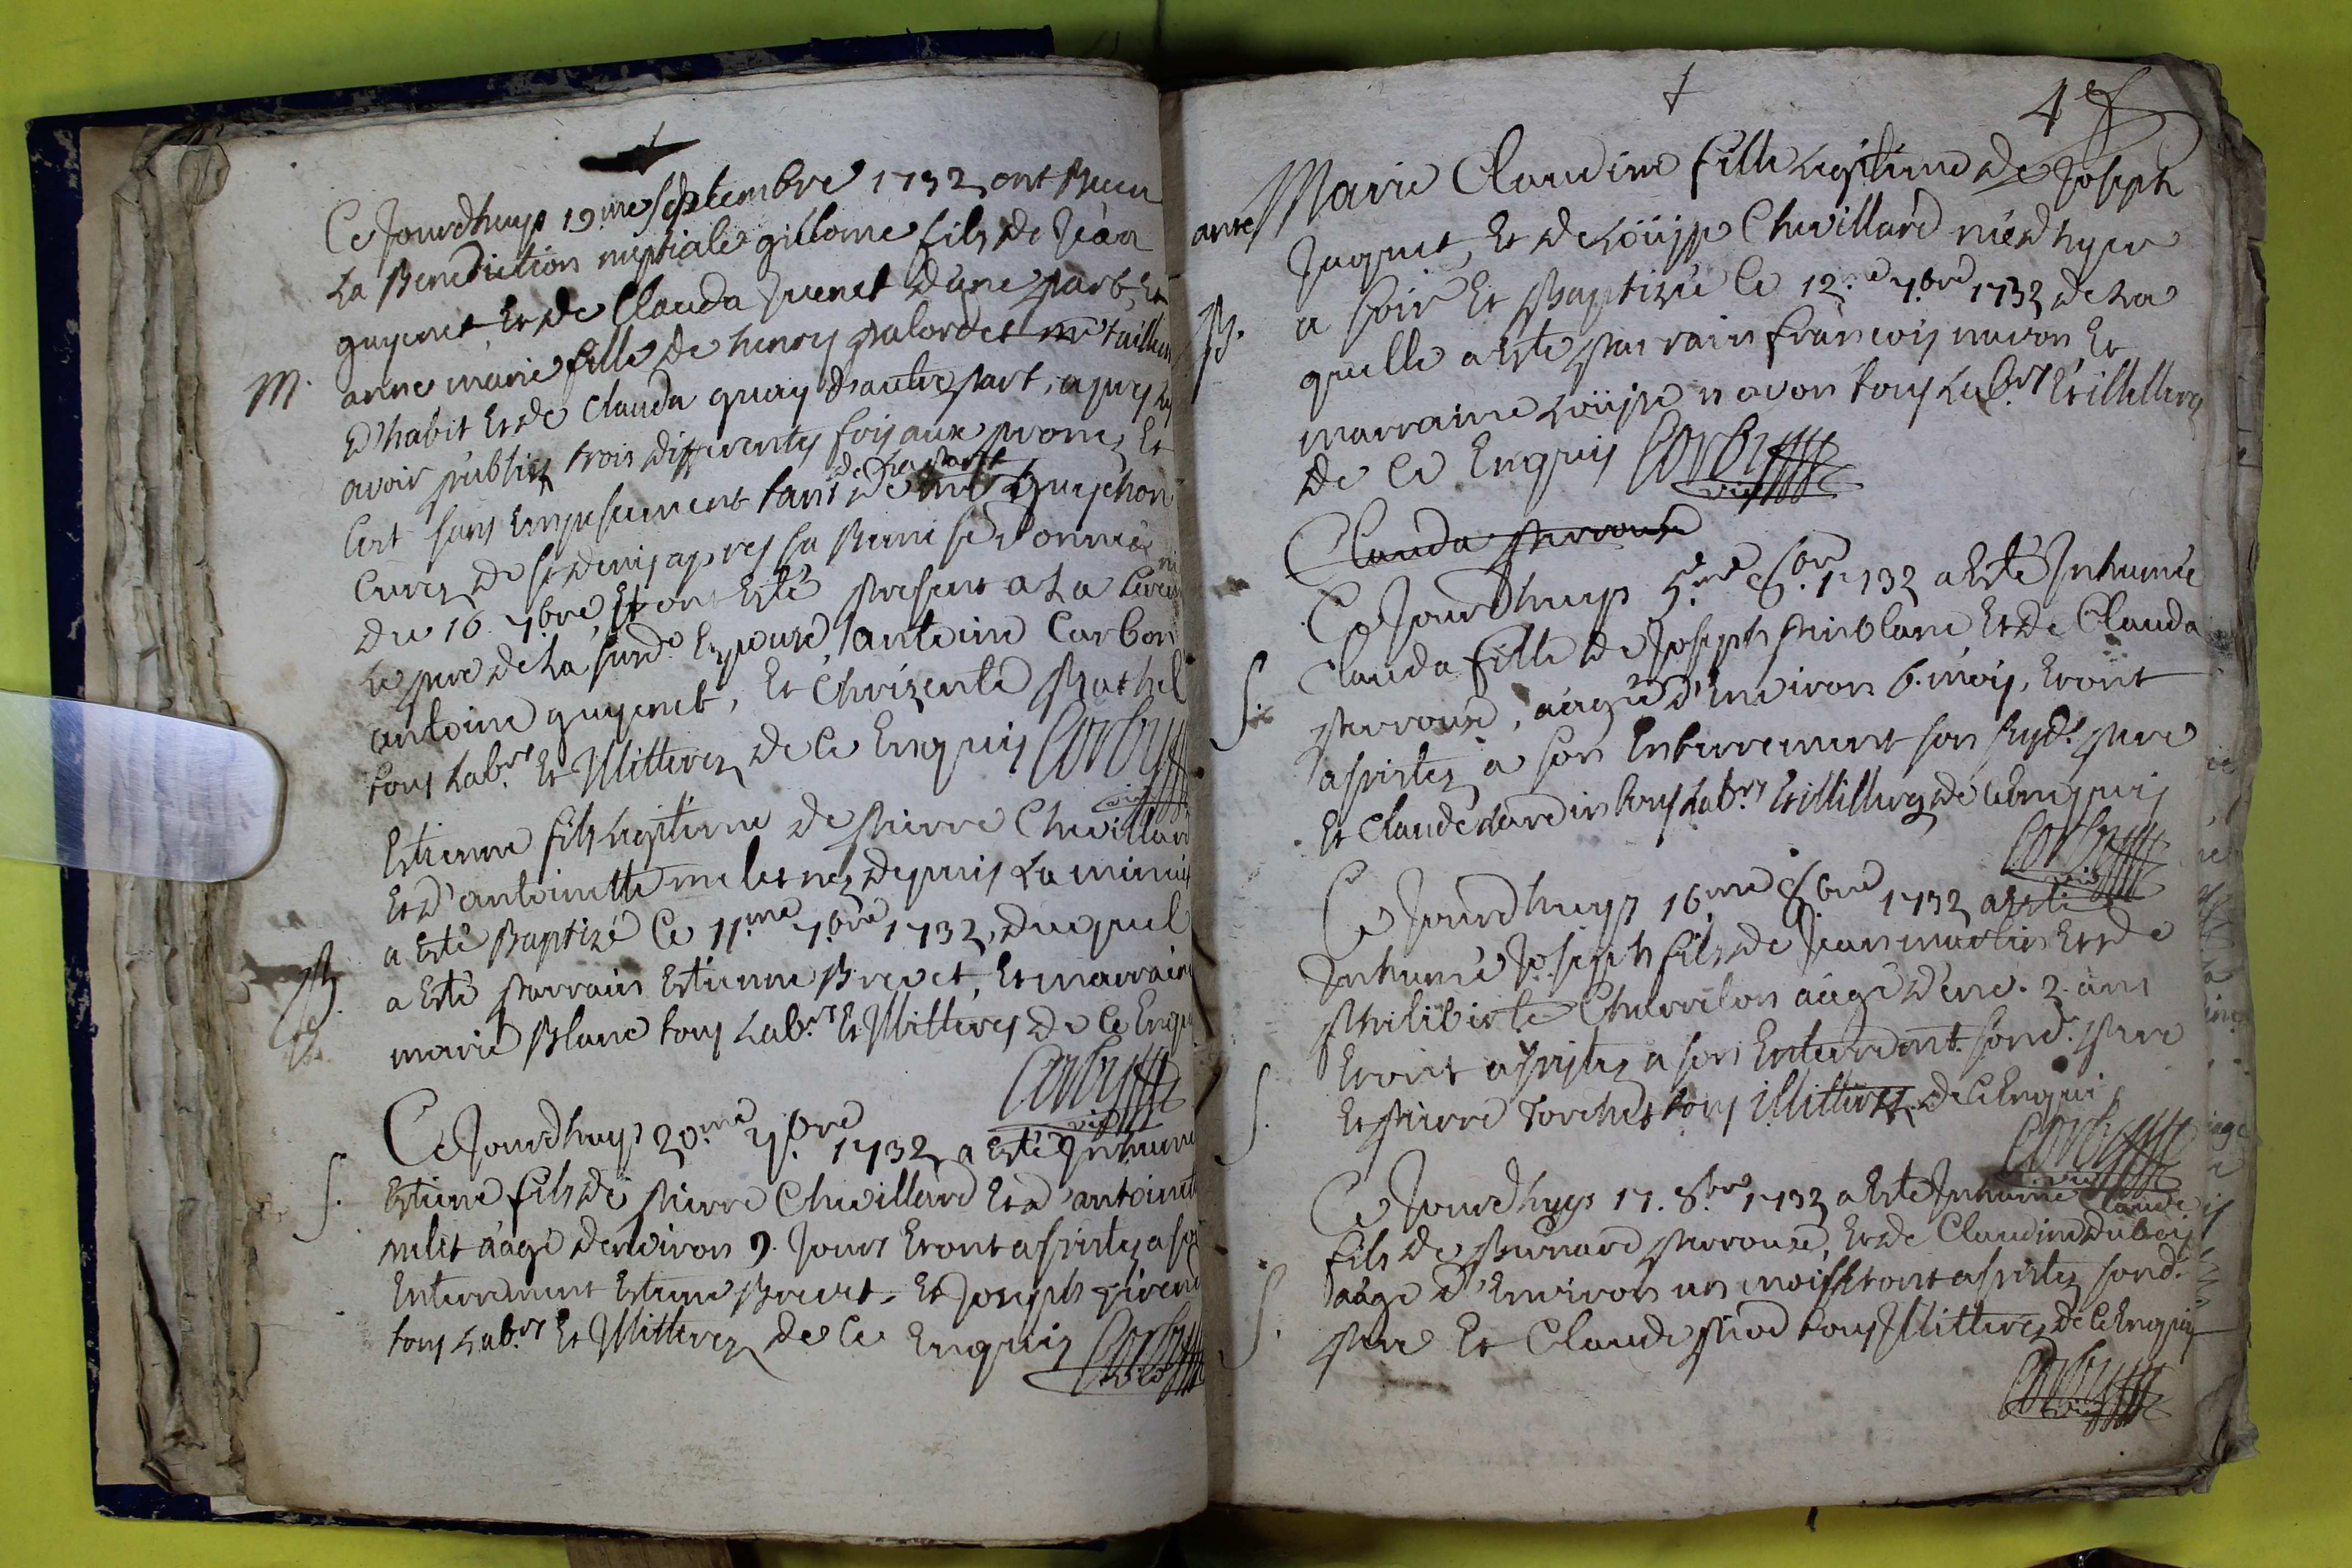 Ce Jourdhuys 19me septembre 1732 ont Receu
La Benediction nuptiale gillome fils de Jean
guyenet, Et de Clauda Juenet d'une part, Et
M. anne marie fille de henry palordet me tailleur
D'habit Et de Clauda quay d'autre part, apres les
avoir publiez trois differentes fois aux prones, Et
Cest sans Empeschement tant de la part de mr guychon
Curez de st denis apres sa Remise donnée
du 16 7bre, Et ont Esté present a La Cerem
Le pere de La susde Espouse, antoine Carbon
antoine guyenet, Et Chrizente Bathel
tous Labrs Et Illitterez de Ce Enquis Corby
vic
Estienne fils Legitime de pierre Chevillard
Et D'antoinette melet nez depuis La minuit
a Esté Baptizé Ce 11me 7bre 1732, duquel
B. a Esté parrain Estienne Brevet, Et marraine
marie Blanc tous Labrs Et Illitteres de Ce Enquis
Corby
vic
Ce Jourdhuys 20me 7bre 1732 a Esté Inhumé
S. Estiene fils de pierre Chevillard Et d'antoinette
melet aàgé denviron 9. Jours Et ont assistez a son
Enterrement Estiene Brevet, Et Joseph
tous Labrs Et Illitterez de Ce Enquis Corby
vic
4e
Marie Claudine fille Legitime de Joseph
ante Jaquet, Et de Loüyse Chevillard née dhyer
B. a soir Et Baptizée Ce 12me 7bre 1732 de La
quelle a Esté parrain francois navon Et
marraine Loüyse navon tous Labrs Et illitterez
de Ce Enquis Corby
vic
Clauda perrouse
Ce Jourdhuys 5me 8bre 1732 a Esté Inhumée
S. Clauda fille de Joseph Et de Clauda
perrouse, aàgée d'Environ 6. mois, Et ont
assistez a son Enterrement son susdt pere
Et Claude nardin tous Labrs Et illitterez de Ce Enquis
Corby
vic
Ce Jourdhuys 16me 8bre 1732 a Esté
Inhumé Joseph fils de Jean martin Et de
philiberte Charrelon aàgé d'env. 2. ans
S. Et ont assistez a son Enterremt. sond. pere
Et pierre Torchet tous illitterez de Ce Enquis
Corby
vic
Ce Jourdhuys 17. 8bre 1732 a Esté Inhumé Claude
fils de Bernard perrouse, Et de Claudine dubois
S. aàgé d'Environ un mois Et ont assistez sond.
pere Et Claude piod tous Illitterez de Ce Enquis
Corby
vic